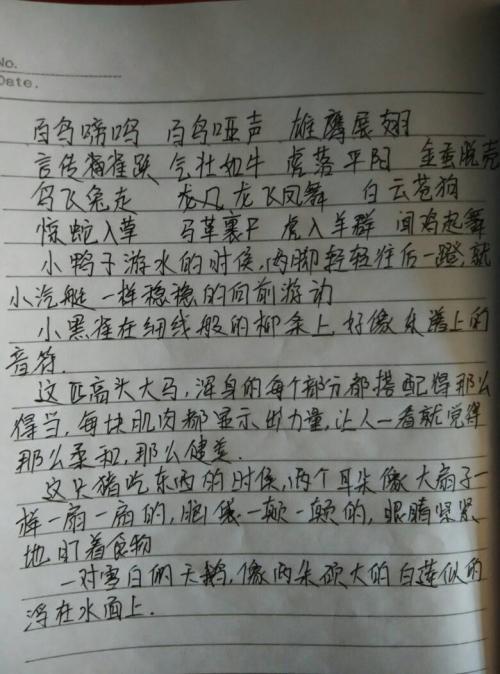 No.
Date.
百鸟啼鸣 百鸟哑声 雄鹰展翅
言传猫雀跃 气壮如牛 虎落平阳 金蝉脱壳
鸟飞兔走 龙凡龙飞凤舞 白云苍狗
惊蛇入草 马革裹尸 虎入羊群 闻鸡起舞
小鸭子游水的时候,两脚轻轻往后一蹬,就
小汽艇一样稳稳的向前游动
小黑雀在细线般的柳条上,好像乐谱上的
音符.
这匹高头大马,浑身的每个部分都搭配得那么
得当,每块肌肉都显示出力量,让人一看就觉得
那么柔和,那么健美.
这只猪吃东西的时候,两个耳朵像大扇子一
样一扇一扇的,一颠一颠的,眼睛紧紧
地盯着食物
一对雪白的天鹅,像两朵硕大的白莲似的
浮在水面上.